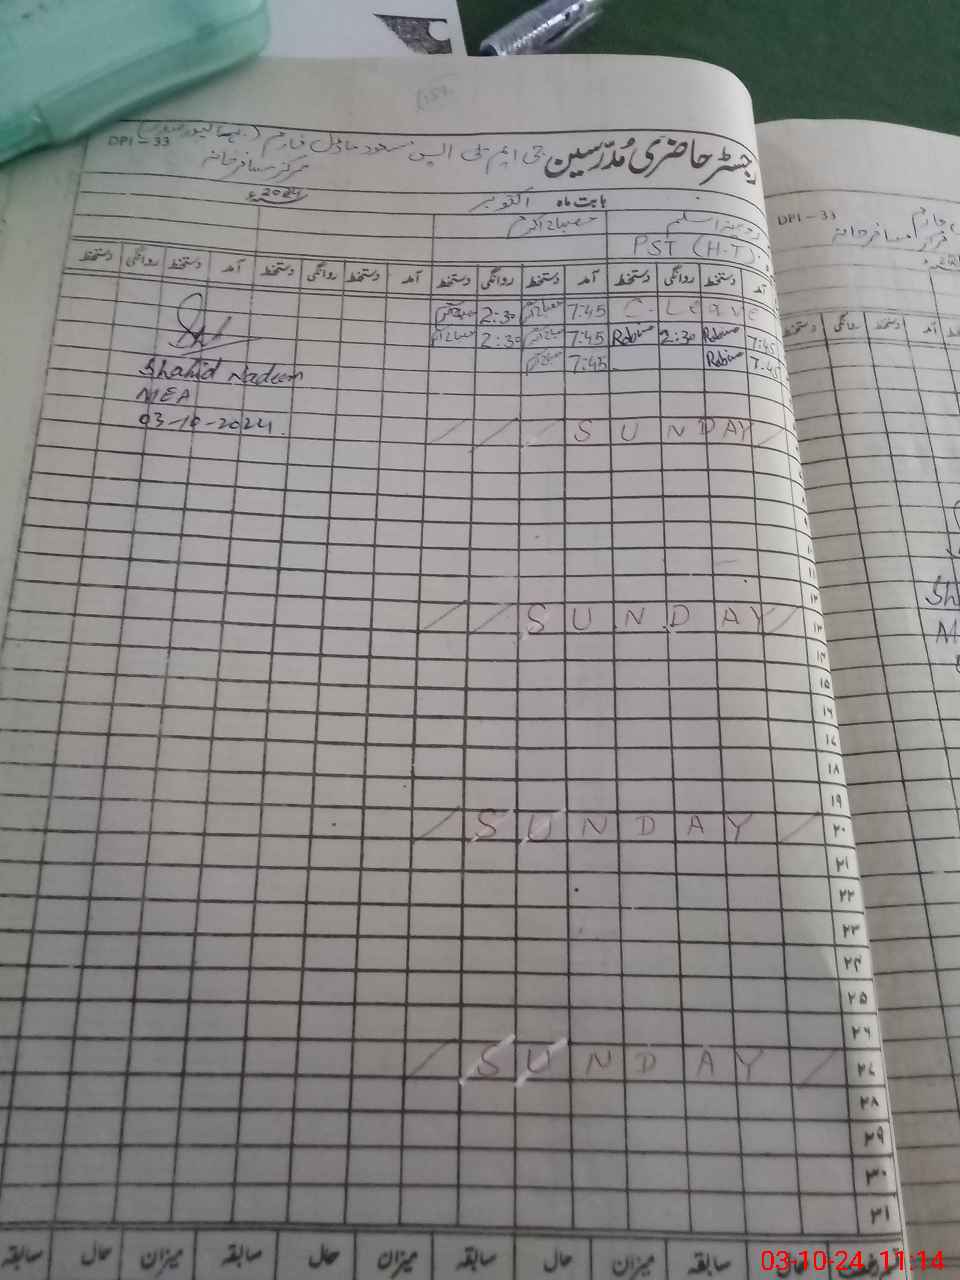 DPI-33
رجسٹر حاضری مُدرّسین جی ایم پی ایس مسعود ماڈل فارم
مرکز مسافر خانہ
بابت ماہ اکتوبر 2024ء
اسلم مصباح اکرم
PST (H-T)
آمد دستخط روانگی دستخط آمد دستخط روانگی دستخط آمد دستخط روانگی دستخط آمد دستخط روانگی دستخط
C. Leave 7:45 2:30
7:45 Rabima 2:30 Rabima 7:45 2:30
7:45 Rabima 7:45
Shahid Nadeem
MEA
03-10-2024
SUNDAY
۸
۹
۱۰
۱۱
۱۲
۱۳ SUNDAY
۱۴
۱۵
۱۶
۱۷
۱۸
۱۹
۲۰ SUNDAY
۲۱
۲۲
۲۳
۲۴
۲۵
۲۶
۲۷ SUNDAY
۲۸
۲۹
۳۰
۳۱
سابقہ حال میزان سابقہ حال میزان سابقہ حال میزان سابقہ
DPI-33
مرکز مسافر خانہ
دستخط آمد دستخط روانگی دستخط
03-10-24 11:14